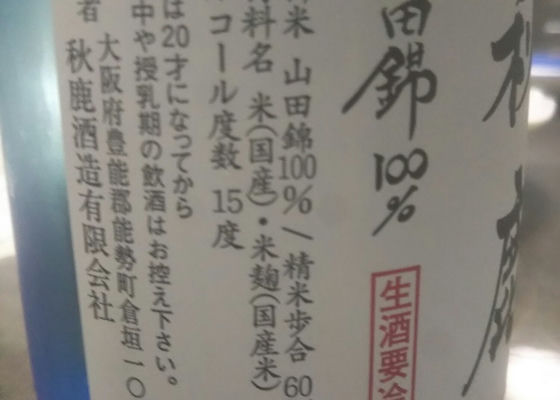 秋鹿
田錦 100%
生酒要冷
米 山田錦100%/精米歩合 60
料名 米(国産)・米麹(国産米)
コール度数 15度
は20才になってから
中や授乳期の飲酒はお控え下さい。
大阪府豊能郡能勢町倉垣一〇
者 秋鹿酒造有限会社